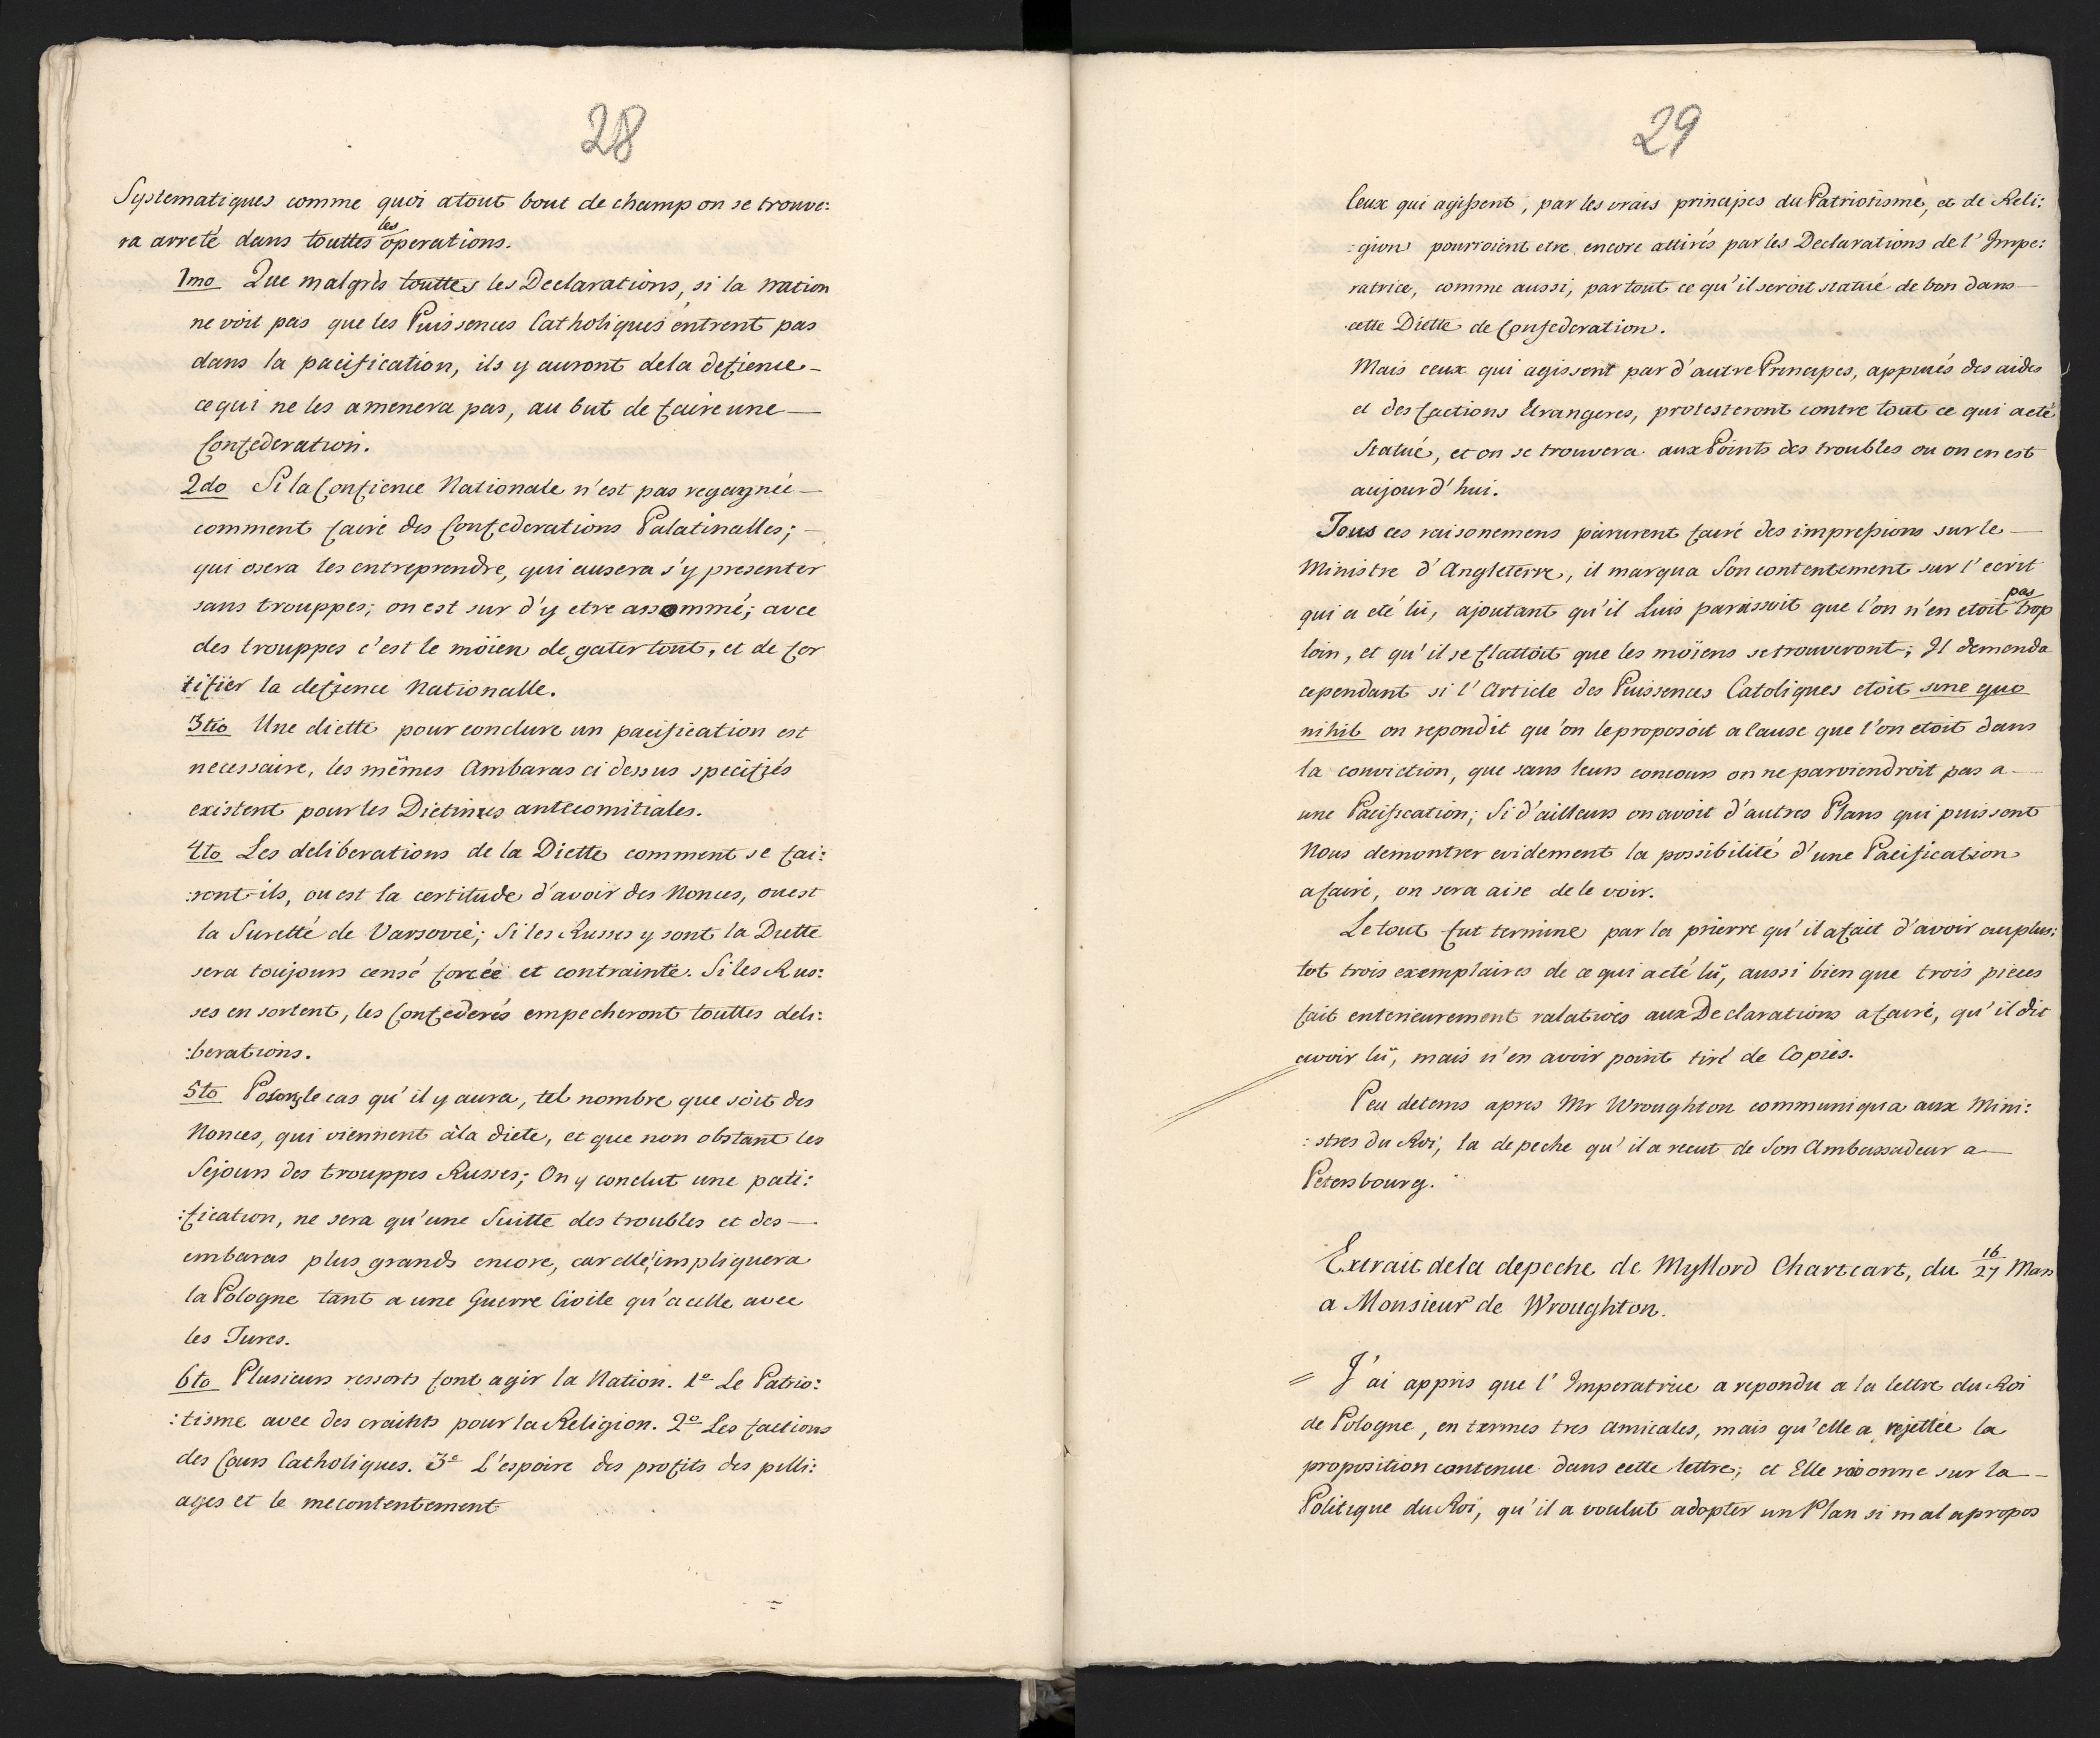 28
Systematiques comme quoi atout bout de champ on se trouve:
ra arreté dans touttes les operations.
1mo Que malgrès touttes les Declarations, si la nation
ne voit pas que les Puissences Catholiques entrent pas
dans la pacification, ils y auront dela defience –
ce qui ne les amenera pas, au but de faire une —
Confederation.
2do Si la Confience Nationale n'est pas regagnée —
comment faire des Confederations Palatinalles; –
qui osera les entreprendre, qui ausera s'y presenter
sans trouppes; on est sur d'y etre assommé; avec
des trouppes c'est le möien de gater tout, et de for
tifier la defience Nationalle.
3tio Une diette pour conclure un pacification est
necessaire, les mêmes Ambaras ci dessus specifiés
existent pour les Dietines antecomitiales.
4to Les deliberations de la Diette comment se fai:
:ront-ils, ou est la certitude d'avoir des Nonces, ou est
la Suretté de Varsovie; Si les Russes y sont la Diette
sera toujours censé forcée et contrainte. Si les Rus:
ses en sortent, les Confederés empecheront touttes deli:
:berations.
5to Posons le cas qu'il y aura, tel nombre que soit des
Nonces, qui viennent àla diete, et que non obstant les
Sejours des trouppes Russes; On y conclut une pati:
:fication, ne sera qu'une Suitte des troubles et des —
embaras plus grands encore, car elle impliquera
la Pologne tant a une Guerre Civile qu'a celle avec
les Turcs.
6to Plusieurs ressorts font agir la Nation. 1o Le Patrio:
:tisme avec des craihts pour la Religion. 2o Les factions
des Cours Catholiques. 3o L'espoire des profits des pilli:
ages et le mecontentement
=
29
Ceux qui agissent, par les vrais principes du Patriotisme, et de Reli:
:gion pourroient etre encore attirés par les Declarations de l'Impe:
ratrice, comme aussi, par tout ce qu'il seroit statué de bon dans —
cette Diette de Confederation.
Mais ceux qui agissent par d'autre Principes, appuiés des aides
et des factions Etrangeres, protesteront contre tout ce qui a eté
Statué, et on se trouvera aux Points des troubles ou on en est
aujourd'hui.
Tous ces raisonemens parurent faire des impressions sur le —
Ministre d'Angleterre, il marqua Son contentement sur l'ecrit
qui a eté lû, ajoutant qu'il Luis paraissoit que l'on n'en etoit pas trop
loin, et qu'il se flattoit que les möiens se trouveront; Il demenda
cependant si l'Article des Puissences Catoliques etoit sine quo
nihil on repondit qu'on le proposoit a Cause que l'on etoit dans
la conviction, que sans leurs concours on ne parviendroit pas a —
une Pacification; Si d'ailleurs on avoit d'autres Plans qui puissent
Nous demontrer evidement la possibilité d'une Pacification
a faire, on sera aise de le voir.
Le tout fut termine par la prierre qu'il a fait d'avoir au plus:
tot trois exemplaires de ce qui a eté lû, aussi bien que trois pieces
fait enterieurement ralatives aux Declarations a faire, qu'il dit
avoir lü, mais n'en avoir point tiré de Copies.
Peu detems apres Mr Wroughton communiqua aux Mini:
:stres du Roi, la depeche qu'il a recut de Son Ambassadeur a —
Petersbourg.
Extrait dela depeche de Myllord Chartcart, du 16/27 Mars
a Monsieur de Wroughton.
= J'ai appris que l'Imperatrice a repondu a la lettre du Roi
de Pologne, en termes tres Amicales, mais qu'elle a rejettée la
proposition contenue dans cette lettre; et Elle raisonne sur la —
Politique du Roi, qu'il a voulut adopter un Plan si mal apropos